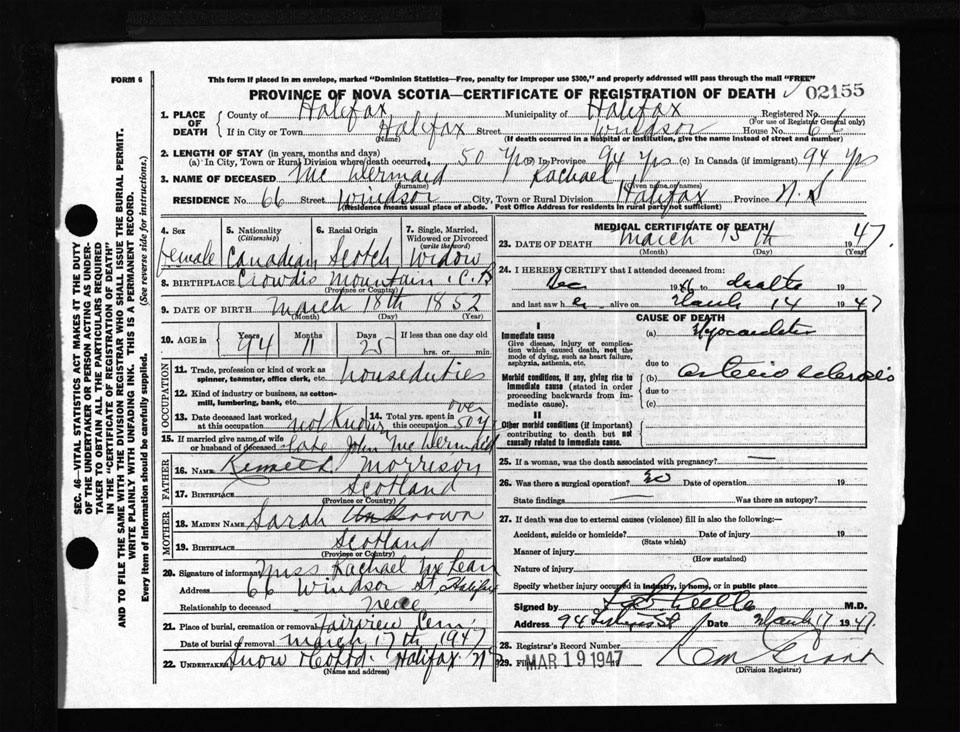 FORM 6
This form if placed in an envelope, marked "Dominion Statistics—Free, penalty for improper use $300," and properly addressed will pass through the mail "FREE"
PROVINCE OF NOVA SCOTIA—CERTIFICATE OF REGISTRATION OF DEATH 02155
1. PLACE OF DEATH
County of Halifax Municipality of Halifax Registered No.
(For use of Registrar General only)
If in City or Town Halifax Street Windsor House No. 66
(Name) (If death occurred in a Hospital or Institution, give the name instead of street and number)
2. LENGTH OF STAY (in years, months and days)
(a) In City, Town or Rural Division where death occurred, 50 Yrs In Province 94 Yrs (c) In Canada (if immigrant) 94 Yrs
3. NAME OF DECEASED Mc Dermaid Rachael
(Surname) (Given name or names)
RESIDENCE No. 66 Street Windsor City, Town or Rural Division Halifax Province N.S
(Residence means usual place of abode. Post Office Address for residents in rural parts not sufficient)
4. Sex
female
5. Nationality
(Citizenship)
Canadian
6. Racial Origin
Scotch
7. Single, Married, Widowed or Divorced
(write the word)
Widow
8. BIRTHPLACE Crowdis Mountain, C.B
(Province or Country)
9. DATE OF BIRTH March 18th 1852
(Month) (Day) (Year)
10. AGE in Years 94 Months 11 Days 25 If less than one day old
hrs. or min.
OCCUPATION
11. Trade, profession or kind of work as spinner, teamster, office clerk, etc. houseduties
12. Kind of industry or business, as cotton-mill, lumbering, bank, etc.
13. Date deceased last worked at this occupation not Known 14. Total yrs. spent in this occupation over 50 y
15. If married give name of wife or husband of deceased late John Mc Dermaid
FATHER
16. NAME Kenneth Morrison
17. BIRTHPLACE Scotland
(Province or Country)
MOTHER
18. MAIDEN NAME Sarah Unknown
19. BIRTHPLACE Scotland
(Province or Country)
20. Signature of informant Miss Rachael Mc Lean
Address 66 Windsor St, Halifax
Relationship to deceased neice
21. Place of burial, cremation or removal Fairview Cem.
Date of burial or removal March 17th 1947
22. Undertaker Snow & Co Ltd. Halifax N S
(Name and address)
MEDICAL CERTIFICATE OF DEATH
23. DATE OF DEATH March 15th 1947
(Month) (Day) (Year)
24. I HEREBY CERTIFY that I attended deceased from:
Dec 1946 to death 19
and last saw her alive on March 14 1947
CAUSE OF DEATH
I
Immediate cause
Give disease, injury or complication which caused death, not the mode of dying, such as heart failure, asphyxia, asthenia, etc.
(a) Myocarditis
due to
Morbid conditions, if any, giving rise to immediate cause (stated in order proceeding backwards from immediate cause).
(b) arterio sclerosis
due to
(c)
II
Other morbid conditions (if important) contributing to death but not causally related to immediate cause.
25. If a woman, was the death associated with pregnancy? —
26. Was there a surgical operation? no Date of operation 19
State findings — Was there an autopsy?
27. If death was due to external causes (violence) fill in also the following:—
Accident, suicide or homicide? Date of injury 19
(State which)
Manner of injury
(How sustained)
Nature of injury
Specify whether injury occurred in industry, in home, or in public place
Signed by M.D.
Address 94 Date March 17 1947
28. Registrar's Record Number
29. Filed MAR 19 1947
(Division Registrar)
SEC. 46—VITAL STATISTICS ACT MAKES IT THE DUTY
OF THE UNDERTAKER OR PERSON ACTING AS UNDER-
TAKER TO OBTAIN ALL THE PARTICULARS REQUIRED
IN THE "CERTIFICATE OF REGISTRATION OF DEATH"
AND TO FILE THE SAME WITH THE DIVISION REGISTRAR WHO SHALL ISSUE THE BURIAL PERMIT.
WRITE PLAINLY WITH UNFADING INK. THIS IS A PERMANENT RECORD.
Every item of information should be carefully supplied. (See reverse side for instructions.)